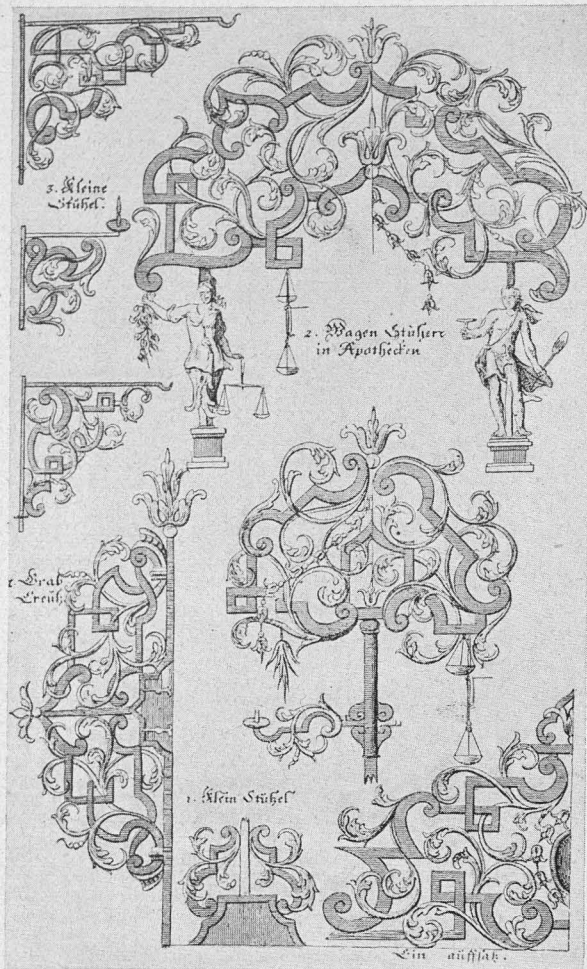 3. Kleine
Stützel.
2. Wagen Stützere
in Apothecken
1. Grab
Creütz
1. Klein Stützel
Ein auffsatz.